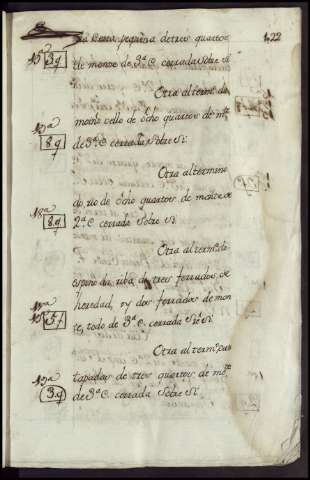 122
pequeña de tres quartos
15ª
3q
de monte de 3ª C. cerrada sobre si
Otra al term.º de
monte vello de ocho quartos de m.te
8q
de 3ª C. cerrada Sobre Si
Otra al termino
do rio de ocho quartos de monte de
18ª
8q
2ª C. cerrada Sobre Si
Otra al term.º de
espiño da riba, de tres ferrados de
heredad, y dos ferrados de mon
5f
te, todo de 3ª C. cerrada S.re Si
Otra al term.º das
tapadas de tres quartos de m.te
3q
de 3ª C. cerrada Sobre Si